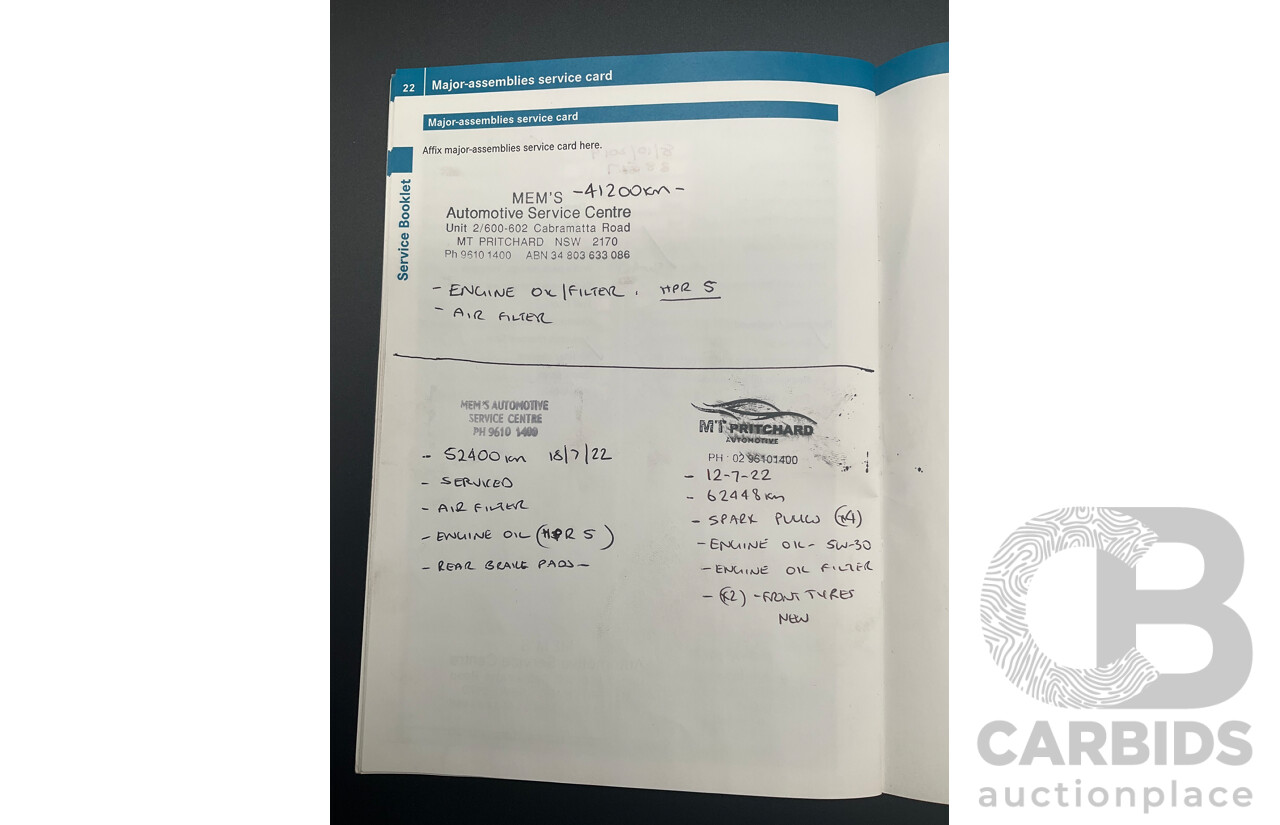 22 Major-assemblies service card
Major-assemblies service card
Affix major-assemblies service card here.
Service Booklet
MEM'S -41200km-
Automotive Service Centre
Unit 2/600-602 Cabramatta Road
MT PRITCHARD NSW 2170
Ph 9610 1400 ABN 34 803 633 086
- ENGINE OIL/FILTER. HPR 5
- AIR FILTER
MEM'S AUTOMOTIVE
SERVICE CENTRE
PH 9610 1400
- 52400km 18/7/22
- SERVICED
- AIR FILTER
- ENGINE OIL (HPR 5)
- REAR BRAKE PADS -
MT PRITCHARD
AUTOMOTIVE
PH : 02 96101400
- 12-7-22
- 62448km
- SPARK PLUGS (x4)
- ENGINE OIL - 5W-30
- ENGINE OIL FILTER
- (x2) - FRONT TYRES
NEW
CB
CARBIDS
auctionplace